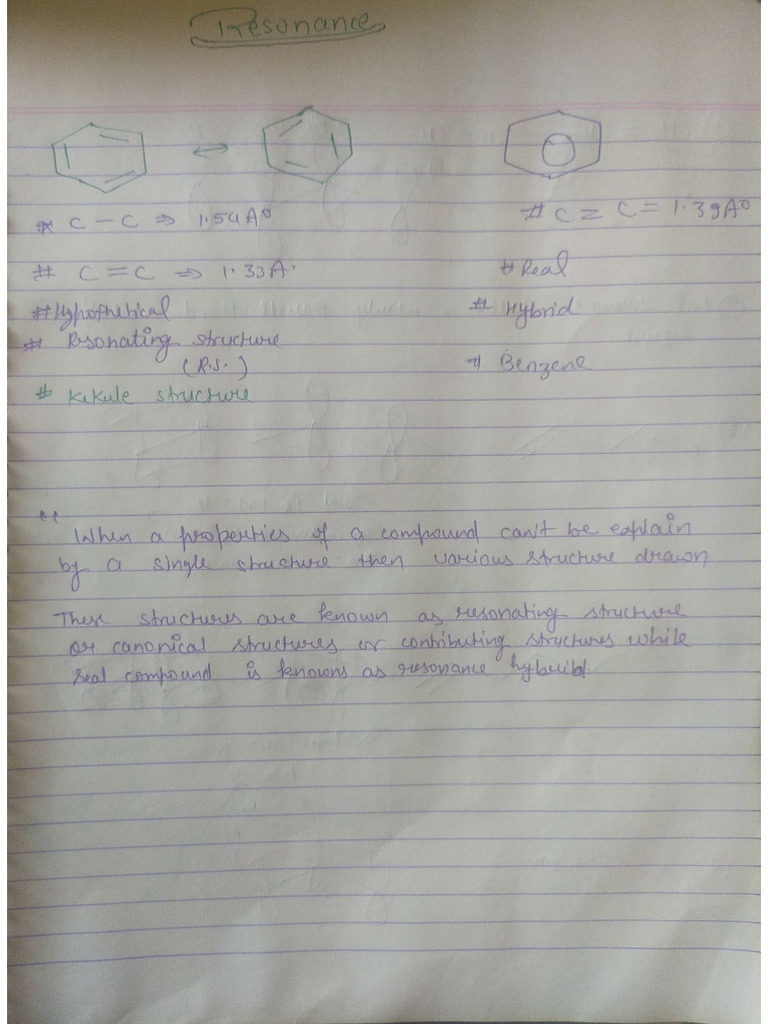 Resonance
* C - C ⇒ 1.54A°
# C = C = 1.39A°
# C = C ⇒ 1.33A.
# Real
# Hypothetical
# Hybrid
# Resonating structure
(R.S.)
# Benzene
# Kekule structure
** When a properties of a compound can't be explain
by a single structure then various structure drawn
These structures are known as resonating structure
or canonical structures or contributing structures while
real compound is knowns as resonance hybrid.